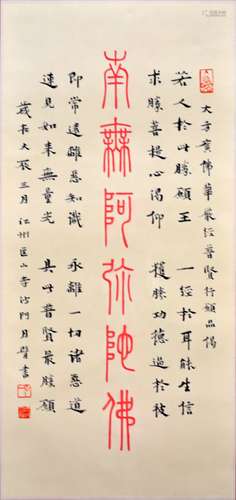 大方廣佛華嚴經普賢行願品偈
若人於此勝願王 一經於耳能生信
求勝菩提心渴仰 獲勝功德過於彼
南無阿弥陀佛
即常遠離惡知識 永離一切諸惡道
速見如來無量光 具此普賢最勝願
歲在 辰三月江州匡山寺沙門月 書